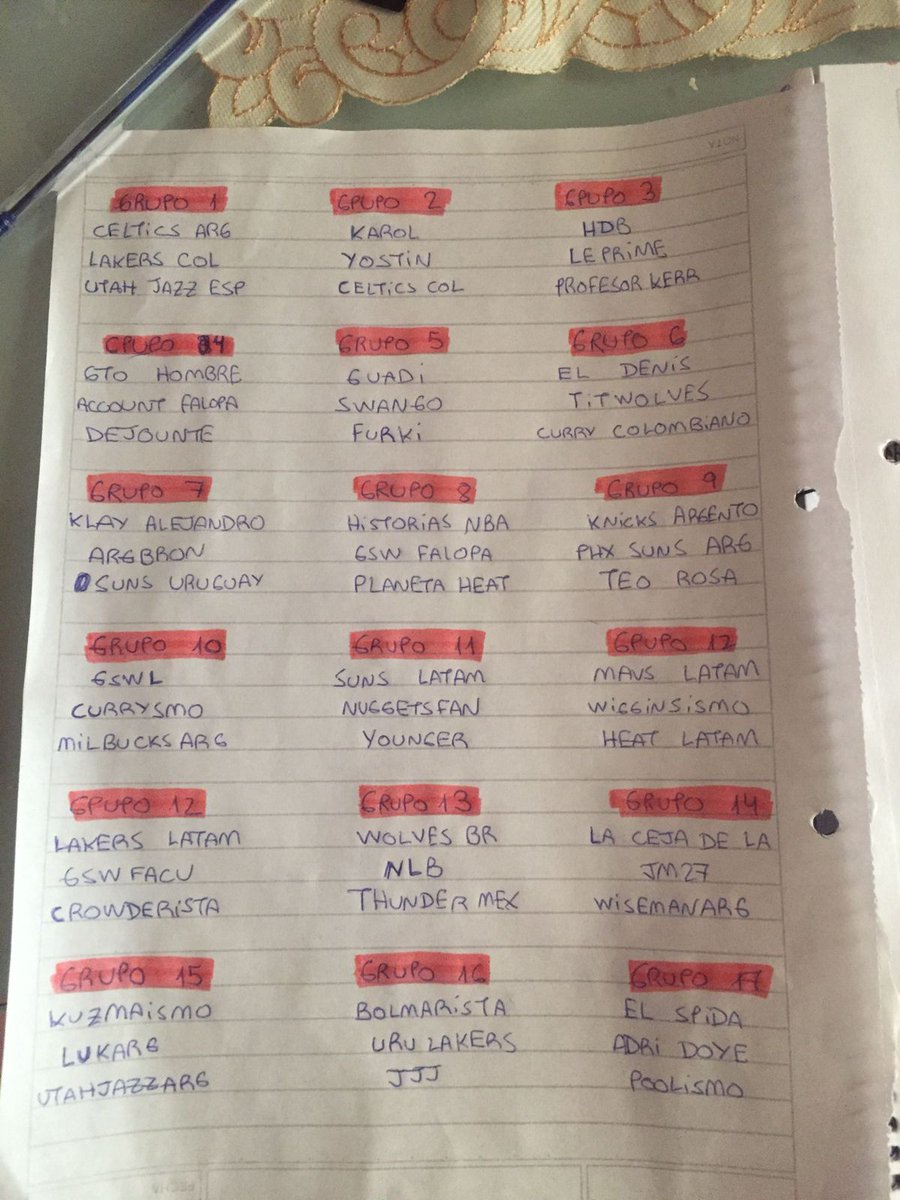 NOTA
GRUPO 1
CELTICS ARG
LAKERS COL
UTAH JAZZ ESP
GRUPO 2
KAROL
YOSTIN
CELTICS COL
GRUPO 3
HDB
LE PRIME
PROFESOR KERR
GRUPO 4
GTO HOMBRE
ACCOUNT FALOPA
DEJOUNTE
GRUPO 5
GUADI
SWANGO
FURKI
GRUPO 6
EL DENIS
TITWOLVES
CURRY COLOMBIANO
GRUPO 7
KLAY ALEJANDRO
ARGBRON
SUNS URUGUAY
GRUPO 8
HISTORIAS NBA
GSW FALOPA
PLANETA HEAT
GRUPO 9
KNICKS ARGENTO
PHX SUNS ARG
TEO ROSA
GRUPO 10
GSWL
CURRYSMO
MILBUCKS ARG
GRUPO 11
SUNS LATAM
NUGGETSFAN
YOUNGER
GRUPO 12
MAVS LATAM
WIGGINSISMO
HEAT LATAM
GRUPO 12
LAKERS LATAM
GSW FACU
CROWDERISTA
GRUPO 13
WOLVES BR
NLB
THUNDER MEX
GRUPO 14
LA CEJA DE LA
JM27
WISEMANARG
GRUPO 15
KUZMAISMO
LUKARG
UTAHJAZZARG
GRUPO 16
BOLMARISTA
URU LAKERS
JJJ
GRUPO 17
EL SPIDA
ADRI DOYE
POOLISMO
FECHA